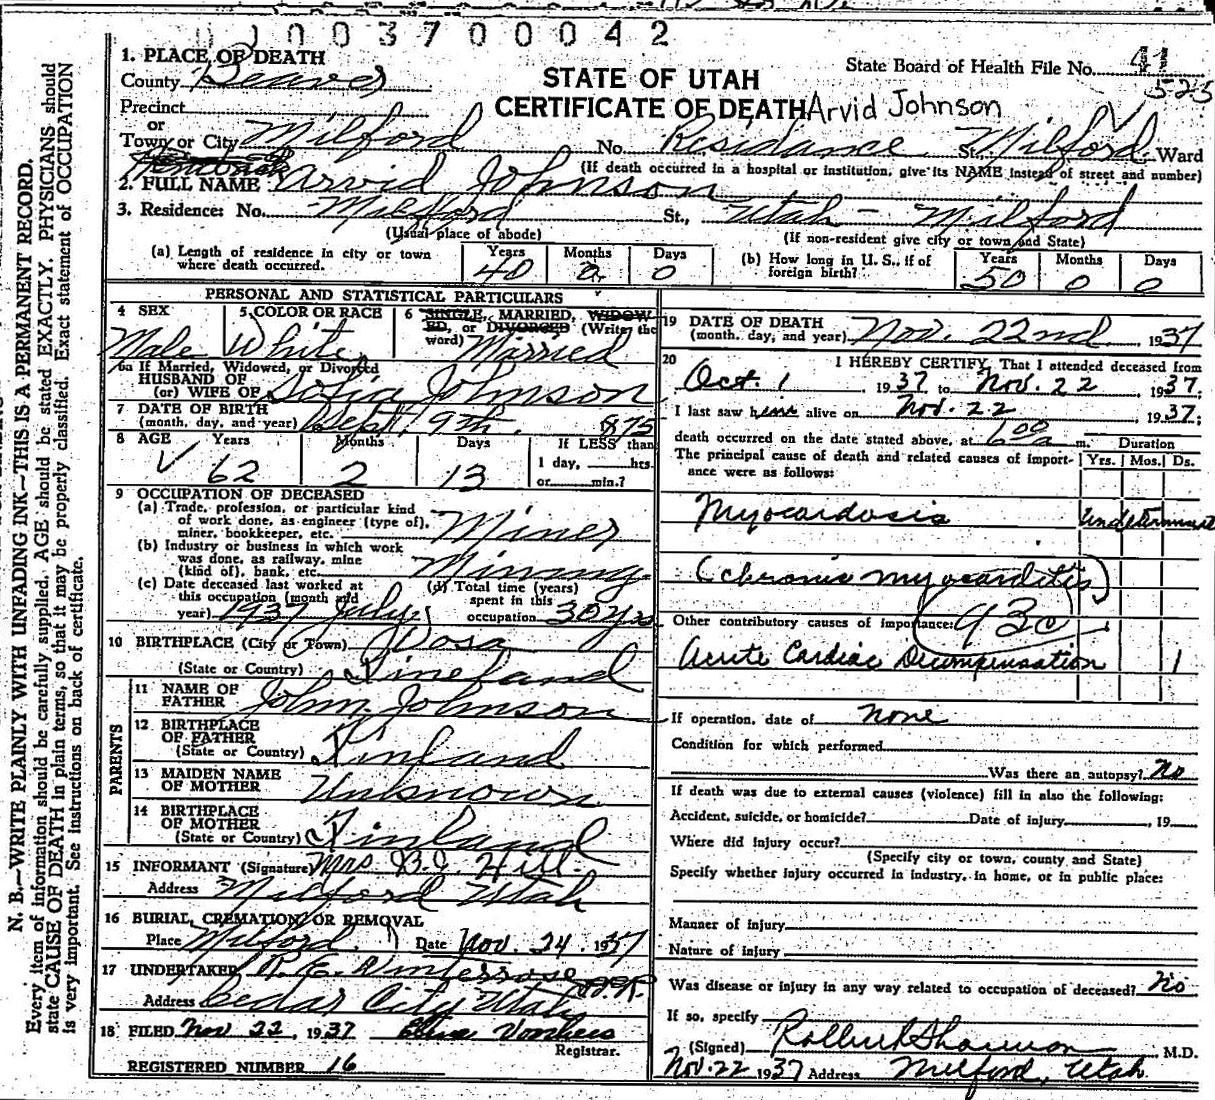 0 0 3 7 0 0 0 4 2
1. PLACE OF DEATH
County Beaver
Precinct
or
Town or City Milford No. Residance St., Milford Ward
STATE OF UTAH
CERTIFICATE OF DEATH Arvid Johnson
State Board of Health File No. 41
525
(If death occurred in a hospital or institution, give its NAME instead of street and number)
2. FULL NAME Arvid Johnson
3. Residence: No. Milford St., Utah - Milford
(Usual place of abode) (If non-resident give city or town and State)
(a) Length of residence in city or town where death occurred. Years 40 Months 0 Days 0
(b) How long in U. S., if of foreign birth? Years 50 Months 0 Days 0
PERSONAL AND STATISTICAL PARTICULARS
4 SEX Male
5 COLOR OR RACE White
6 SINGLE, MARRIED, WIDOWED, or DIVORCED (Write the word) Married
6a If Married, Widowed, or Divorced
HUSBAND OF
(or) WIFE OF Sofia Johnson
7 DATE OF BIRTH
(month, day, and year) Sept. 9th. 1875
8 AGE Years 62 Months 2 Days 13 If LESS than
1 day, hrs.
or min.?
9 OCCUPATION OF DECEASED
(a) Trade, profession, or particular kind
of work done, as engineer (type of),
miner, bookkeeper, etc. Miner
(b) Industry or business in which work
was done, as railway, mine
(kind of), bank, etc. Mining
(c) Date deceased last worked at
this occupation (month and
year) 1937 July
(d) Total time (years)
spent in this
occupation 30 yrs
10 BIRTHPLACE (City or Town) Vosa
(State or Country) Fineland
PARENTS
11 NAME OF
FATHER John Johnson
12 BIRTHPLACE
OF FATHER
(State or Country) Finland
13 MAIDEN NAME
OF MOTHER Unknown
14 BIRTHPLACE
OF MOTHER
(State or Country) Finland
15 INFORMANT (Signature) Mrs. B.C. Hill.
Address Milford Utah
16 BURIAL, CREMATION, OR REMOVAL
Place Milford Date Nov. 24, 1937
17 UNDERTAKER R. E. Winterrose
Address Cedar City Utah
18 FILED Nov 22, 1937 Voorhees
Registrar.
REGISTERED NUMBER 16
19 DATE OF DEATH
(month, day, and year) Nov. 22nd. 1937
20 I HEREBY CERTIFY, That I attended deceased from
Oct. 1 1937 to Nov. 22, 1937.
I last saw him alive on Nov. 22, 1937;
death occurred on the date stated above, at 6 00 a m.
Duration
The principal cause of death and related causes of importance were as follows: Yrs. Mos. Ds.
Myocardosis Undetermined
(chronic myocarditis)
93c
Other contributory causes of importance:
Acute Cardiac Decompensation 1
If operation, date of none
Condition for which performed
Was there an autopsy? No
If death was due to external causes (violence) fill in also the following:
Accident, suicide, or homicide? Date of injury , 19
Where did injury occur?
(Specify city or town, county and State)
Specify whether injury occurred in industry, in home, or in public place:
Manner of injury
Nature of injury
Was disease or injury in any way related to occupation of deceased? No
If so, specify
(Signed) Shannon M.D.
Nov. 22 1937 Address Milford, Utah
N. B.—WRITE PLAINLY WITH UNFADING INK—THIS IS A PERMANENT RECORD.
Every item of information should be carefully supplied. AGE should be stated EXACTLY. PHYSICIANS should
state CAUSE OF DEATH in plain terms, so that it may be properly classified. Exact statement of OCCUPATION
is very important. See instructions on back of certificate.